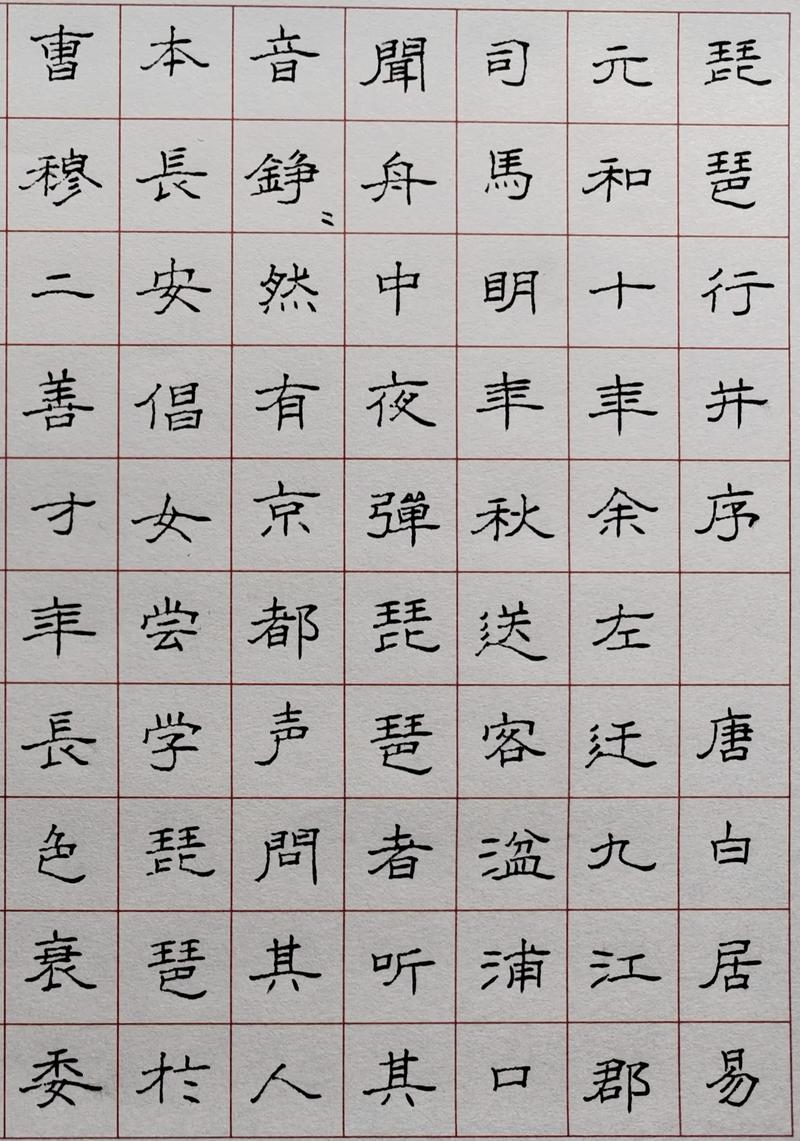 琵琶行并序 唐白居易
元和十年余左迁九江郡
司馬明年秋送客湓浦口
聞舟中夜彈琵琶者听其
音錚〻然有京都声問其人
本長安倡女尝学琵琶於
曹穆二善才年長色衰委